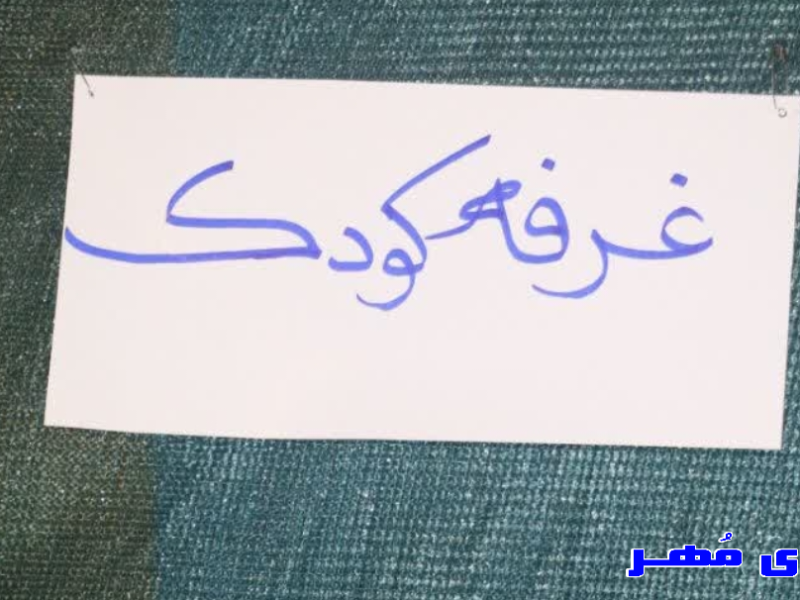 غرفه کودک
ی مُهر